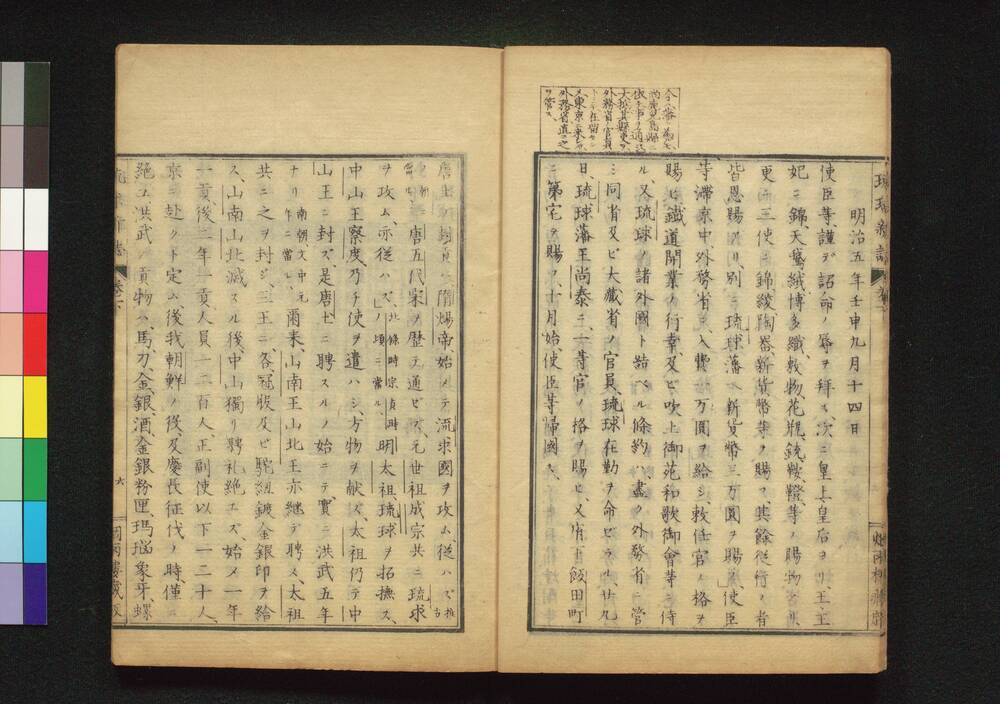 今ハ藩ノ
ヲ管ス
琉球
明治五年壬申九月十四日
使臣等、謹デ詔命ノ辱ヲ拜ス、次ニ皇上皇后ヨリ、王、王
妃ニ錦、天鵞絨、博多織、敷物、花瓶、銃、鞍、鐙等ノ賜物
更ニ三使ニ錦、綾、陶器、新貨幣等ノ賜フ、其餘從行ノ者
皆恩賜アリ、別ニ琉球藩ヘ新貨幣三万圓ヲ賜ヒ、使臣
等滯京中、外務省ヨリ入費 万圓ヲ給シ、敕任官ノ格ヲ
賜ヒ、鐵道開業ノ行幸、及ビ吹上御苑和歌御會等ニ侍
ル、又琉球ノ諸外國ト結ベル條約ハ、盡ク外務省ニ管
シ、同省及ビ大藏省ノ官員、琉球在勤ヲ命ゼラル、廿九
日、琉球藩王尚泰ニ、一等官ノ格ヲ賜ヒ、又府下飯田町
ニ第宅ヲ賜フ、十月始、使臣等歸國ス、
隋煬帝、始メテ流求國ヲ攻ム、從ハズ
唐五代宋ヲ歴テ通ゼズ、元世祖成宗共ニ琉球
ヲ攻ム、亦從ハズ、北條時宗貞時ノ頃ニ當ル、明太祖、琉球ヲ招撫ス、
中山王察度、乃チ使ヲ遣ハシ、方物ヲ献ズ、太祖仍テ中
山王ニ封ズ、是唐土ニ聘スルノ始ニテ、實ニ洪武五年
ナリ、南朝文中元年ニ當レリ、爾来、山南王山北王亦継テ聘ス、太祖
共ニ之ヲ封シ、三王ニ、各冠服及ビ駝紐鍍金銀印ヲ給
ス、山南山北滅スル後、中山獨リ聘礼絶エズ、始メ一年
一貢、後二年一貢、人員一二百人、正副使以下二十人、
京ニ赴クト定ム、後我朝鮮ノ役及慶長征伐ノ時、僅ニ
絶ユ、洪武ノ貢物ハ、馬、刀、金、銀、酒、金銀粉匣、瑪瑙、象牙、螺
卷下
六